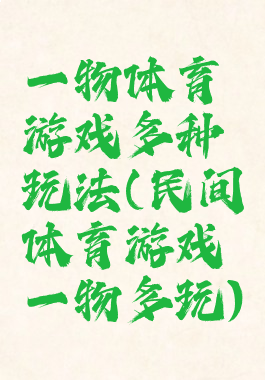 一物体育
游戏多种
玩法(民间
体育游戏
一物多玩)